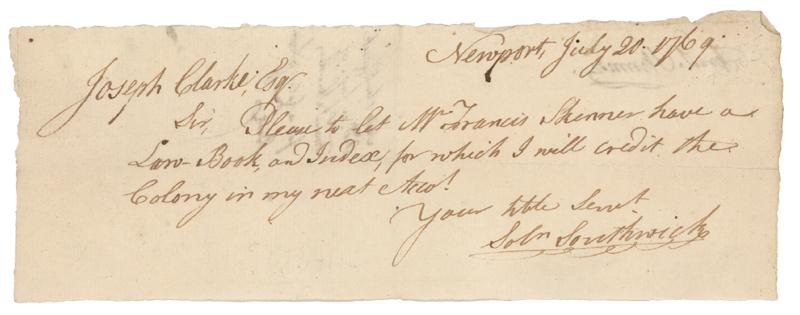 Newport, July 20. 1769.
Joseph Clarke, Esq.
Sir, Please to let Mr Francis Skinner have a
Law-Book, and Index, for which I will credit the
Colony in my next Acco!
Your hble Servt
Soln Southwick